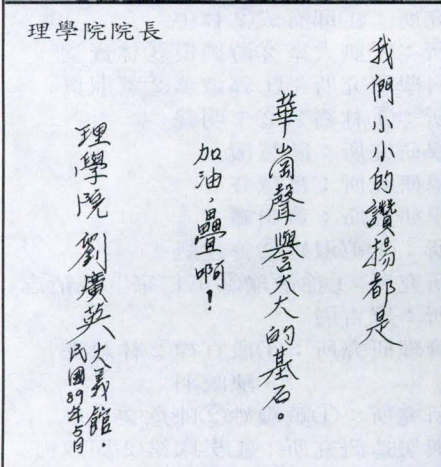 理學院院長
我們小小的讚揚都是
華崗聲譽大大的基石。
加油，疊啊！
理學院 劉廣英 大義館．
民國89年5月